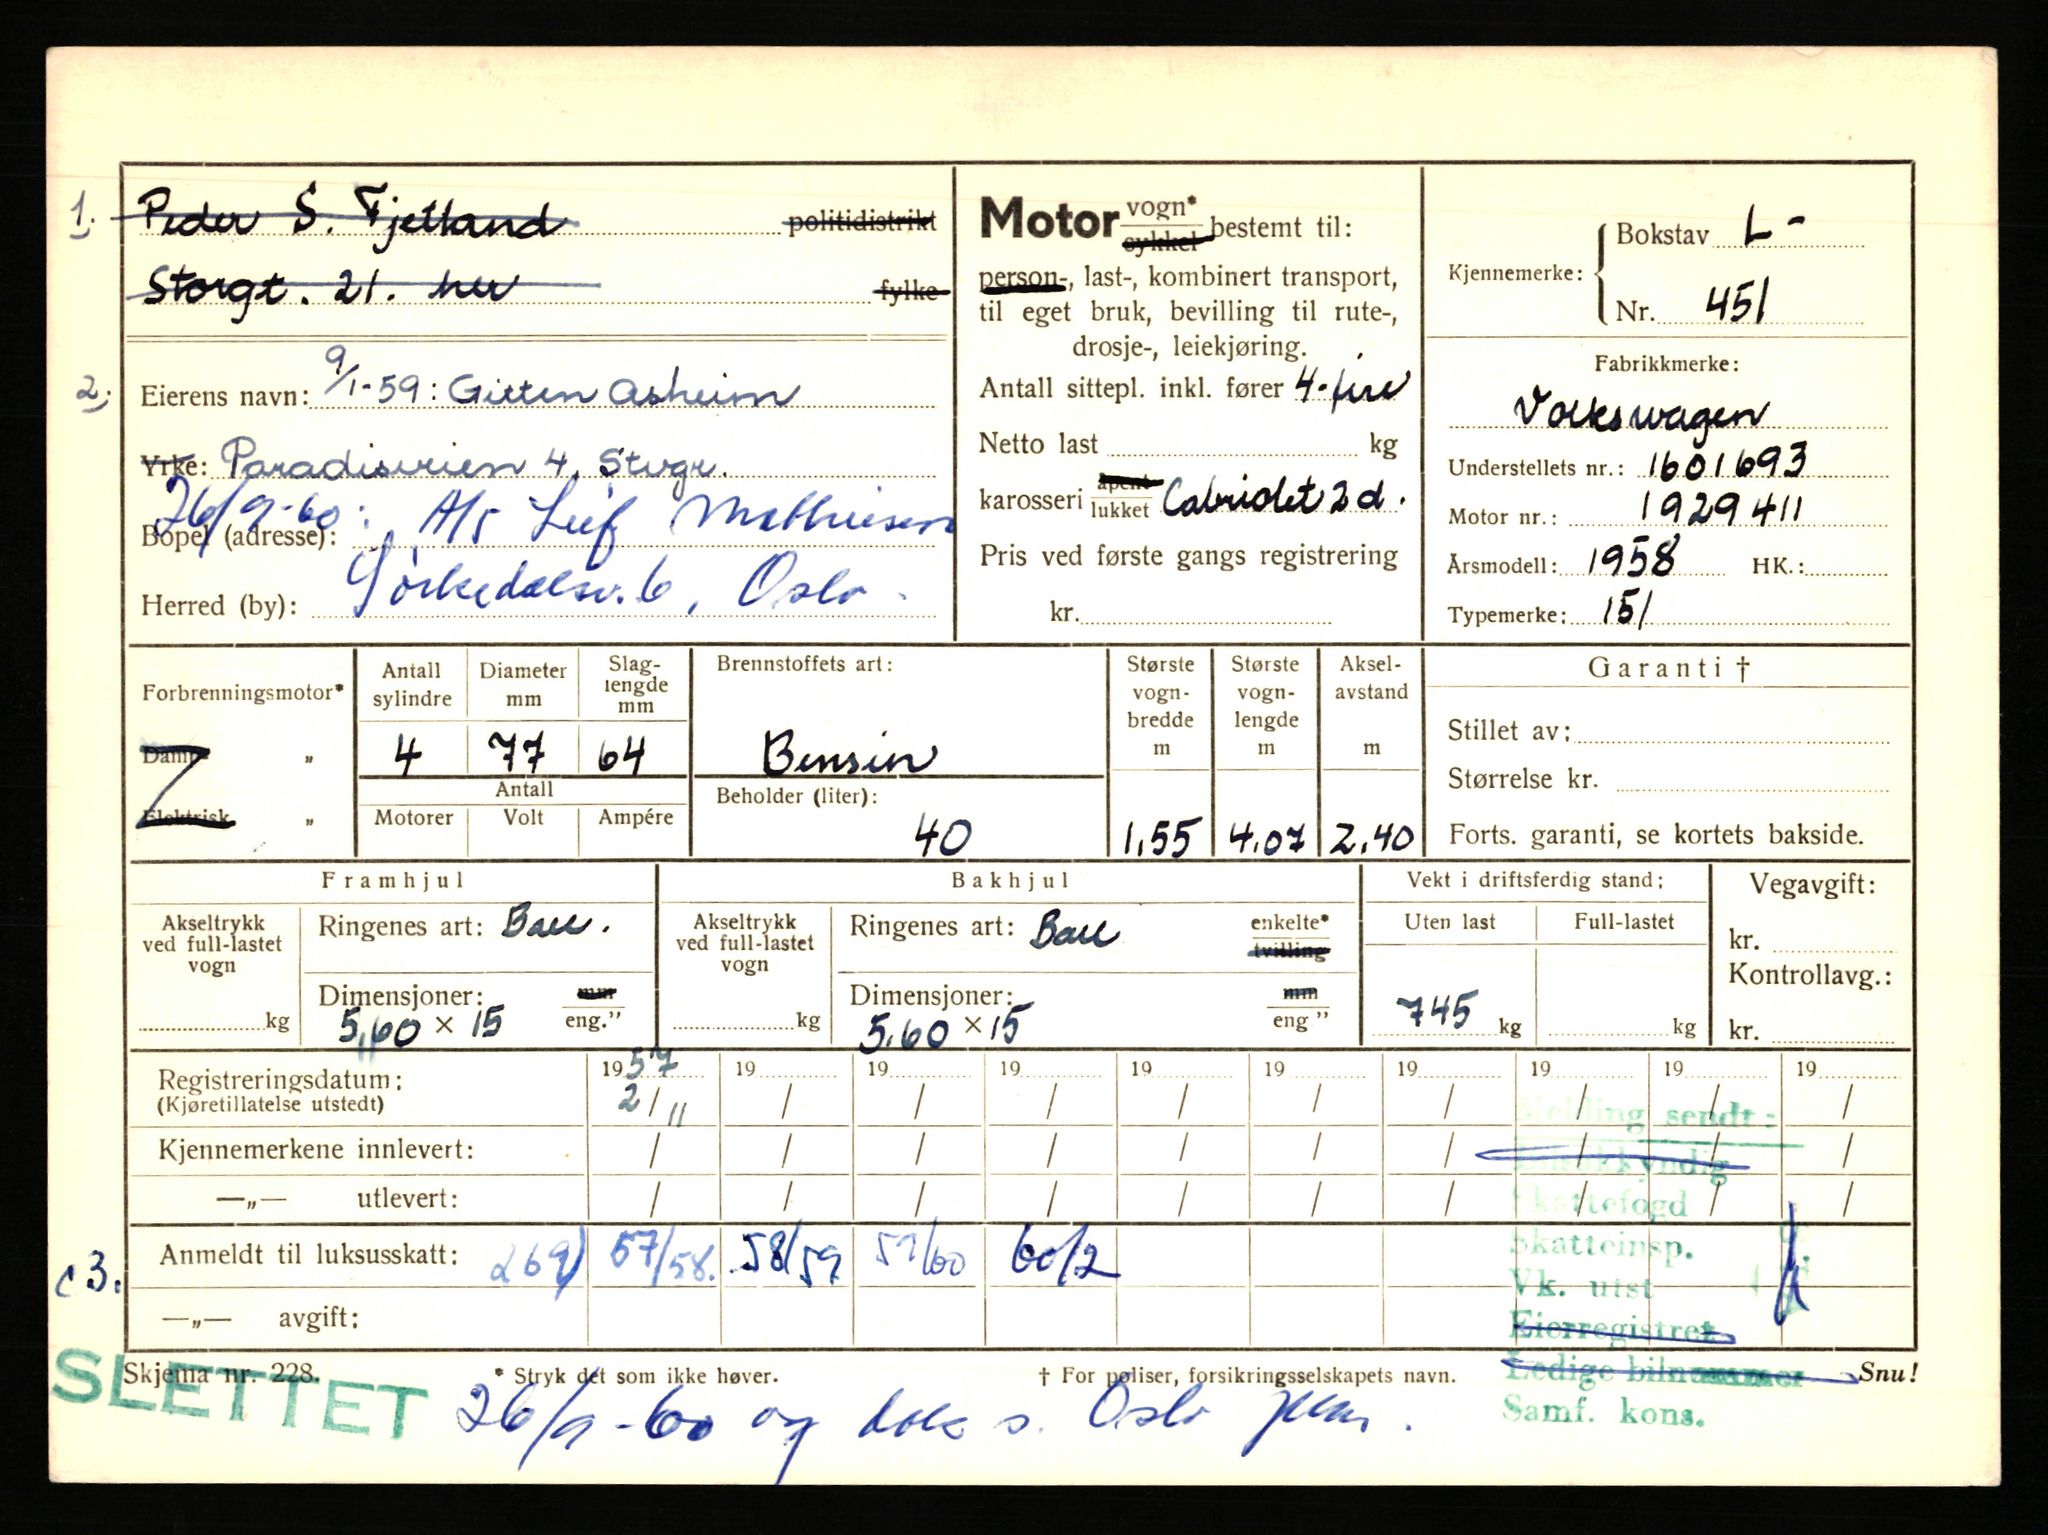 1. Peder S. Fjetland politidistrikt
Storgt. 21. her fylke
2. Eierens navn: 9/1-59: Gitten Asheim
Yrke: Paradisveien 4, Stvgr.
26/9-60: A/S Leif Mathiesen
Bopel (adresse):
Herred (by): Sörkedalsv. 6, Oslo.
Motor vogn* sykkel bestemt til:
person-, last-, kombinert transport,
til eget bruk, bevilling til rute-,
drosje-, leiekjøring.
Antall sittepl. inkl. fører 4-fire
Netto last kg
karosseri åpent lukket Cabriolet 2d.
Pris ved første gangs registrering
kr.
Kjennemerke: Bokstav L-
Nr. 451
Fabrikkmerke:
Volkswagen
Understellets nr.: 1601693
Motor nr.: 1929411
Årsmodell: 1958 HK.:
Typemerke: 151
Forbrenningsmotor*
Damp- "
Elektrisk "
Antall sylindre
Diameter mm
Slag-lengde mm
4 77 64
Antall
Motorer Volt Ampére
Brennstoffets art:
Bensin
Beholder (liter):
40
Største vogn-bredde m
1,55
Største vogn-lengde m
4.07
Aksel-avstand m
2,40
Garanti †
Stillet av:
Størrelse kr.
Forts. garanti, se kortets bakside.
Framhjul
Akseltrykk ved full-lastet vogn
kg
Ringenes art: Ball.
Dimensjoner: mm
5,60 × 15 eng."
Bakhjul
Akseltrykk ved full-lastet vogn
kg
Ringenes art: Ball enkelte* tvilling
Dimensjoner: mm
5.60 × 15 eng "
Vekt i driftsferdig stand:
Uten last Full-lastet
745 kg kg
Vegavgift:
kr.
Kontrollavg.:
kr.
Registreringsdatum: 1957 19 19 19 19 19 19 19 19 19
(Kjøretillatelse utstedt) 2/11 / / / / / / / / /
Kjennemerkene innlevert: / / / / / / / / / /
—„— utlevert: / / / / / / / / / /
Anmeldt til luksusskatt: 269) 57/58. 58/59. 59/60 60/2
c 3.
—„— avgift:
Melding sendt:
Bilsakkyndig
Skattefogd
Skatteinsp.
Vk. utst
Eierregistret
Ledige bilnummer
Samf. kons.
Skjema nr. 228. * Stryk det som ikke høver. † For poliser, forsikringsselskapets navn. Snu!
SLETTET 26/9-60 og dok s. Oslo